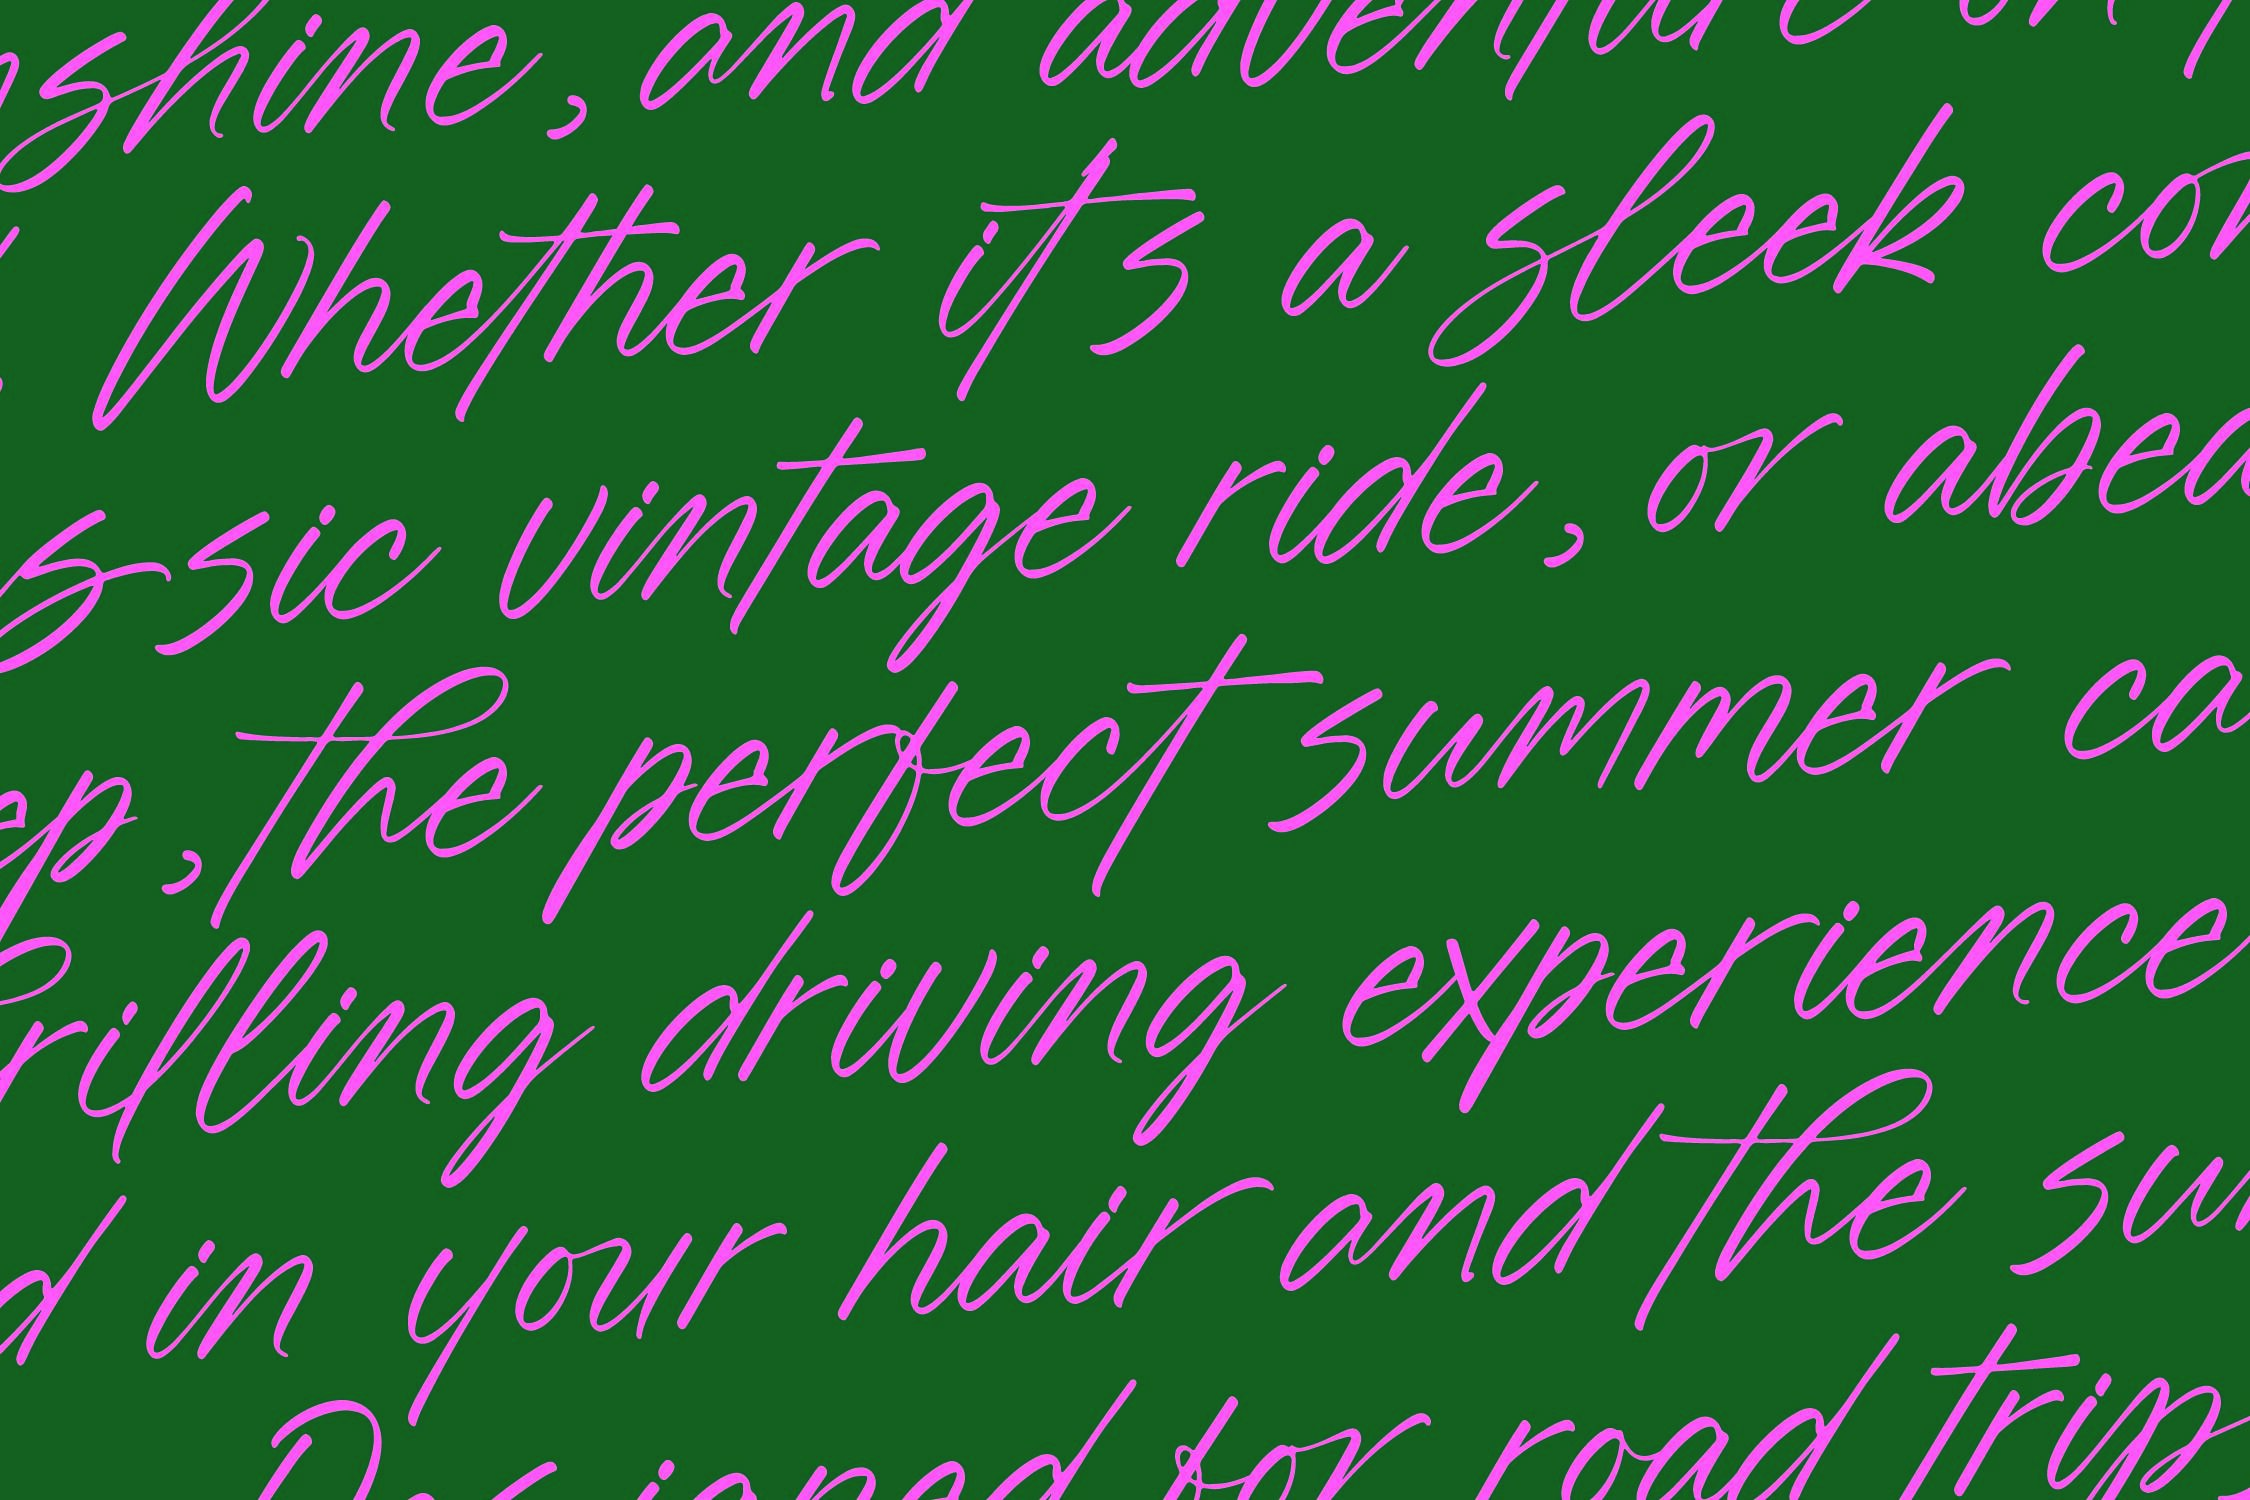 nshine, and adventure on
Whether it's a sleek con
ssic vintage ride, or abea
ep, the perfect summer ca
rilling driving experience
d in your hair and the sun
Designed for road trip